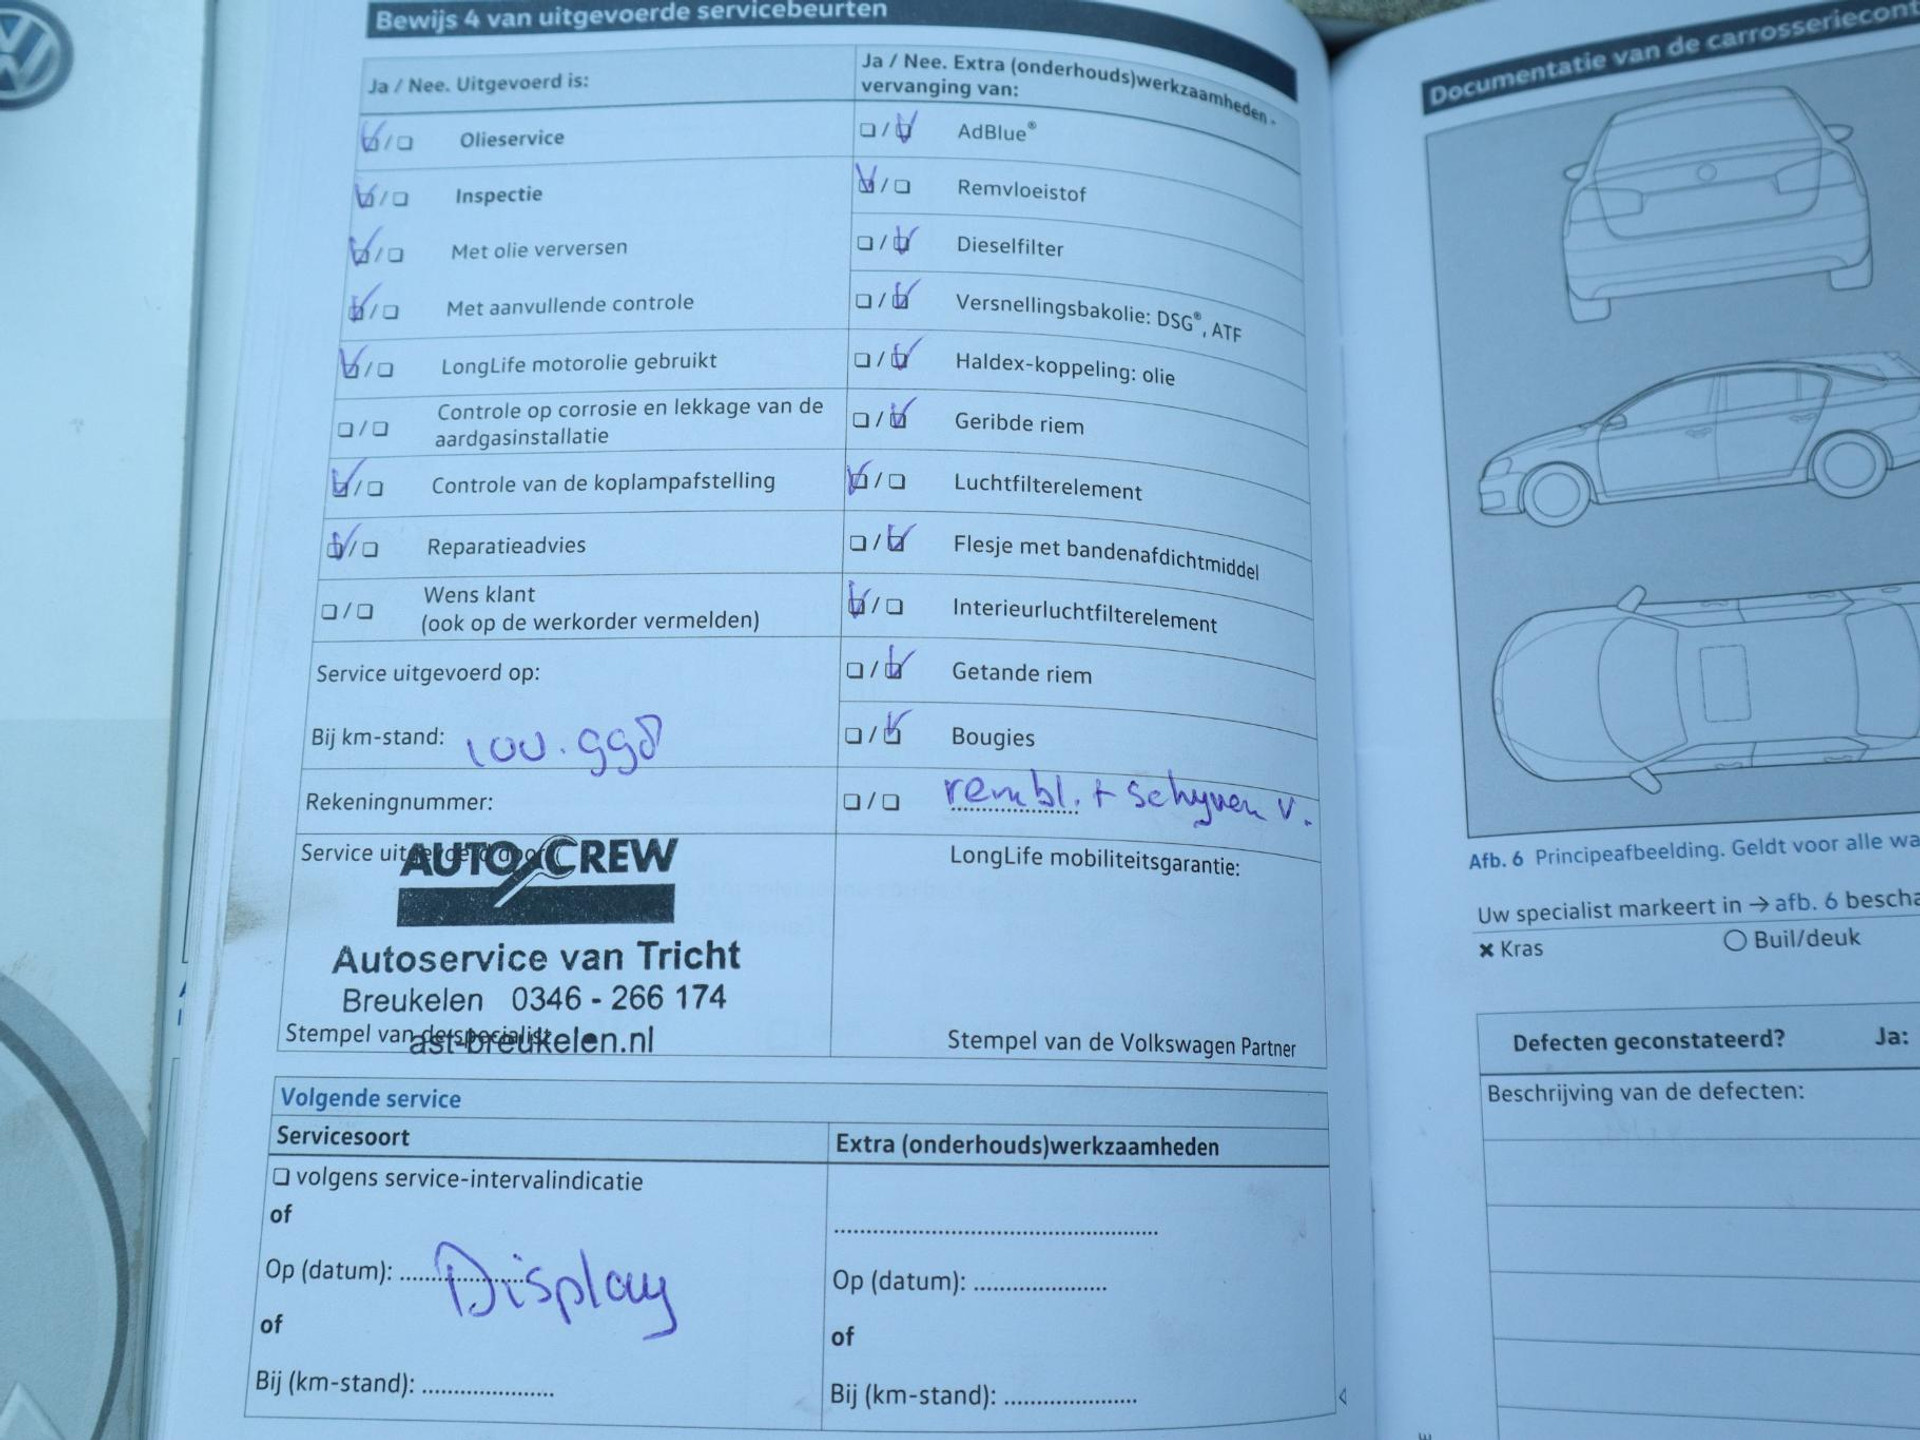 Bewijs 4 van uitgevoerde servicebeurten
Ja / Nee. Uitgevoerd is:
Olieservice
Inspectie
Met olie verversen
Met aanvullende controle
LongLife motorolie gebruikt
Controle op corrosie en lekkage van de
aardgasinstallatie
Controle van de koplampafstelling
Reparatieadvies
Wens klant
(ook op de werkorder vermelden)
Service uitgevoerd op:
Bij km-stand: 100.998
Rekeningnummer:
Ja / Nee. Extra (onderhouds)werkzaamheden -
vervanging van:
AdBlue®
Remvloeistof
Dieselfilter
Versnellingsbakolie: DSG®, ATF
Haldex-koppeling: olie
Geribde riem
Luchtfilterelement
Flesje met bandenafdichtmiddel
Interieurluchtfilterelement
Getande riem
Bougies
rembl. + schyven v.
Service uitgevoerd door:
AUTO CREW
Autoservice van Tricht
Breukelen 0346 - 266 174
ast-breukelen.nl
Stempel van de specialist
LongLife mobiliteitsgarantie:
Stempel van de Volkswagen Partner
Volgende service
Servicesoort
volgens service-intervalindicatie
of
Op (datum): Display
of
Bij (km-stand):
Extra (onderhouds)werkzaamheden
Op (datum):
of
Bij (km-stand):
Documentatie van de carrosseriecont
Afb. 6 Principeafbeelding. Geldt voor alle wa
Uw specialist markeert in → afb. 6 bescha
× Kras
Buil/deuk
Defecten geconstateerd? Ja:
Beschrijving van de defecten: